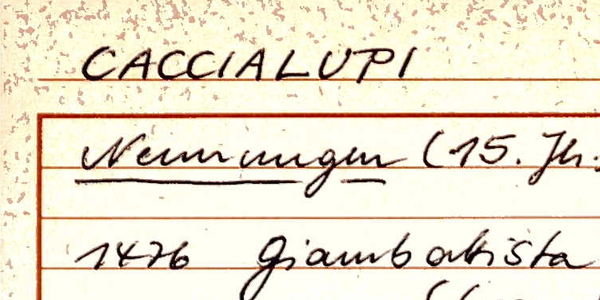 CACCIALUPI
Nennungen (15. Jh.
1476 Giambatista